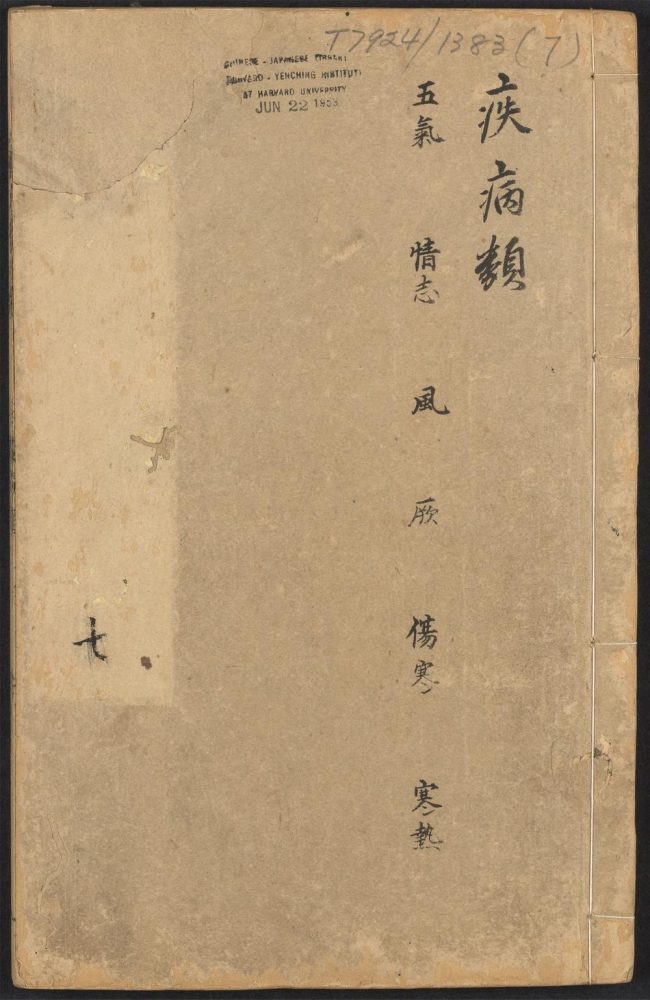 T7924/1383(7)
CHINESE - JAPANESE LIBRARY
HARVARD - YENCHING INSTITUTE
AT HARVARD UNIVERSITY
JUN 22 1953
疾病類
五氣 情志 風 厥 傷寒 寒熱
七